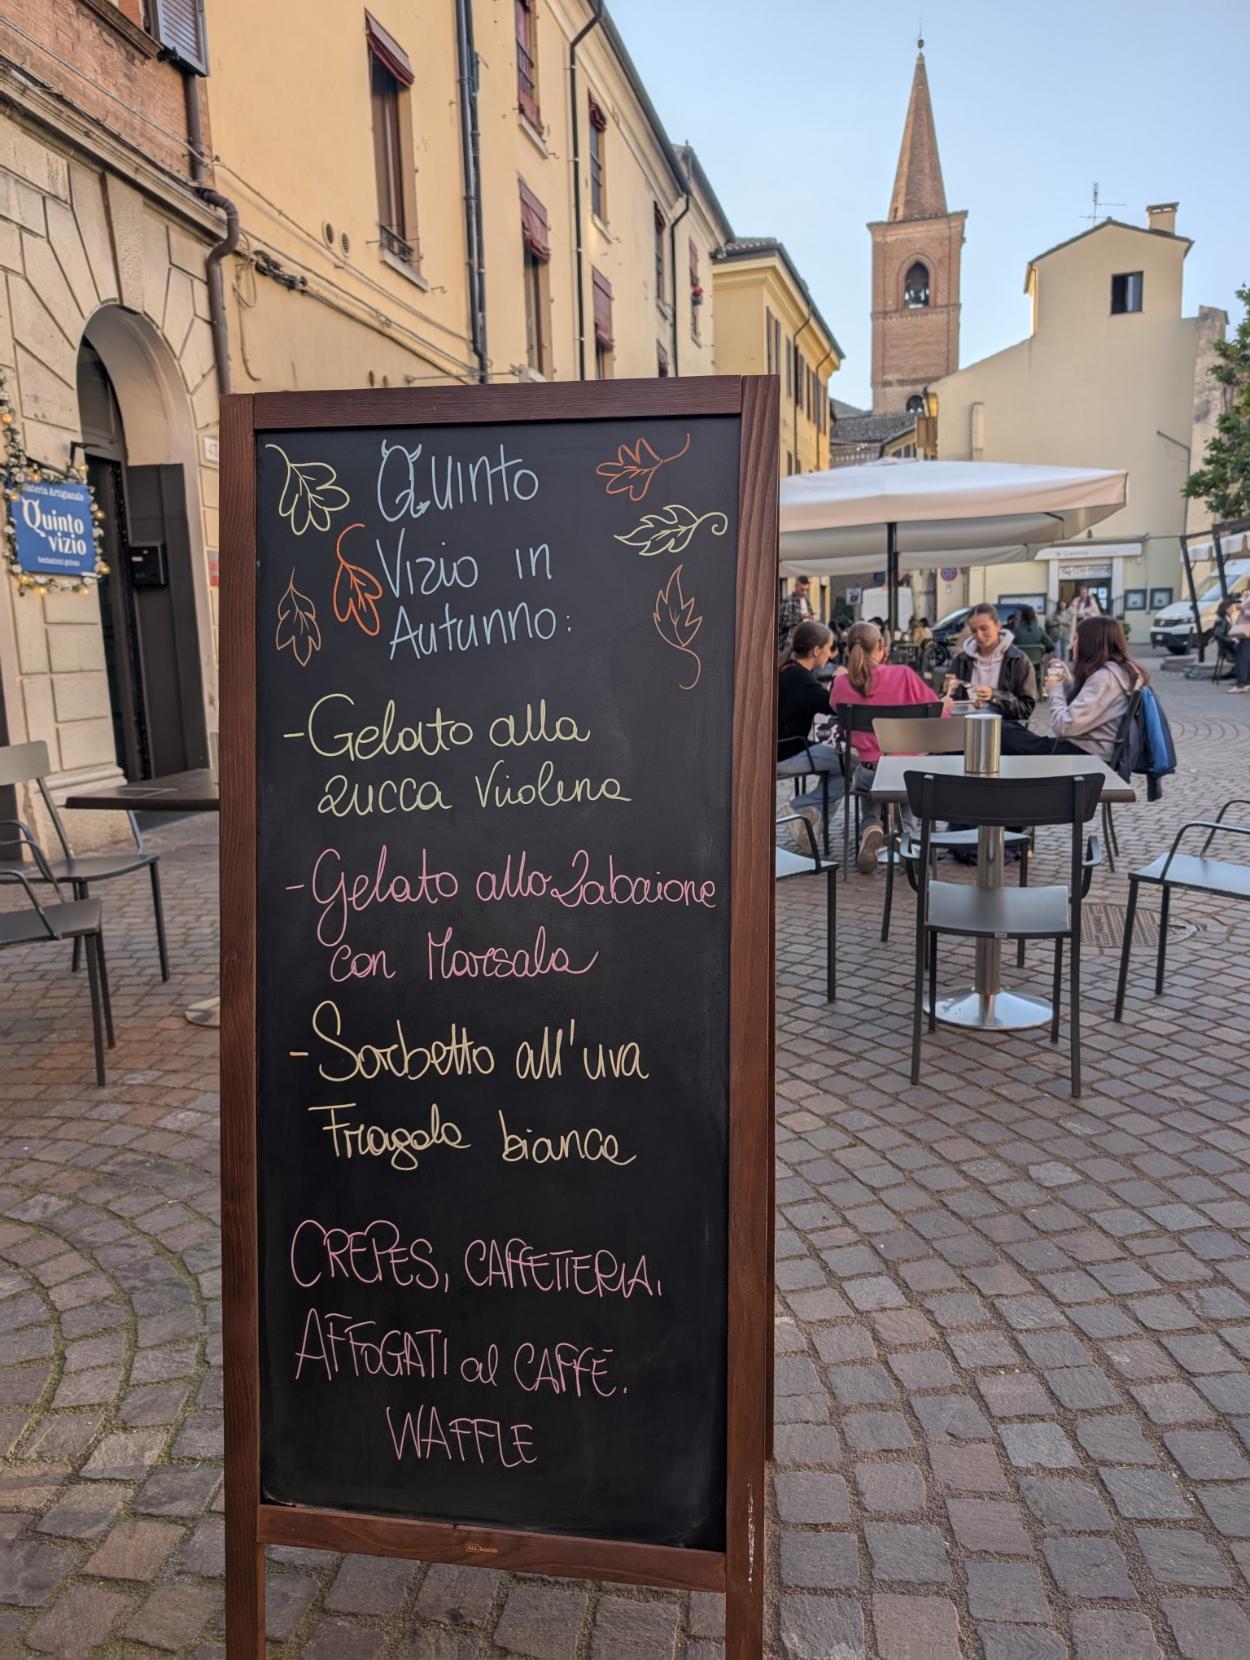 Quinto
Vizio in
Autunno:
-Gelato alla
zucca Violena
-Gelato allo Zabaione
con Marsala
-Sorbetto all'uva
Fragola bianca
CREPES, CAFFETTERIA,
AFFOGATI al CAFFE.
WAFFLE
Gelateria Artigianale
Quinto
vizio
tentazioni golose